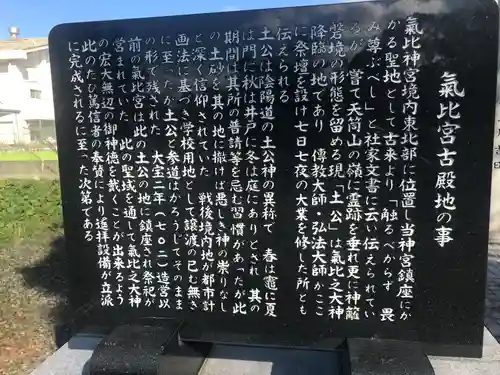 氣比宮古殿地の事
氣比神宮境内東北部に位置し当神宮鎮座にか
かる聖地として古来より「触るべからず 畏
み尊ぶべし」と社家文書に云い伝えられてい
るが、嘗て天筒山の嶺に霊跡を垂れ更に神籬
磐境の形態を留める現「土公」は氣比之大神
降臨の地であり 傳教大師・弘法大師がここ
に祭壇を設け七日七夜の大業を修した所とも
伝えられる
土公は陰陽道の土公神の異称で 春は竈に夏
は門に秋は井戸に冬は庭にありとされ 其の
期間は其所の普請等を忌む習慣があったが此
の土砂を其の地に撒けば悪しき神の祟りなし
と深く信仰されていた 戦後境内地が都市計
画法に基づき学校用地として譲渡の已む無き
に至ったが土公と参道はかろうじてそのまま
の形で残された 大宝二年(七〇二)造営以
前の氣比宮は此の土公の地に鎮座され祭祀が
営まれていた 此の聖域を通して氣比之大神
の宏大無辺の御神徳を戴くことが出来るよう
此のたび篤信者の奉賛により遥拝設備が立派
に完成されるに至った次第である